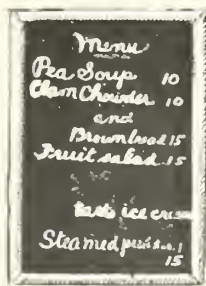 Menu
Pea Soup 10
Clam Chowder 10
and
Brown bread 15
Fruit salad 15
ice cream
Steamed
15